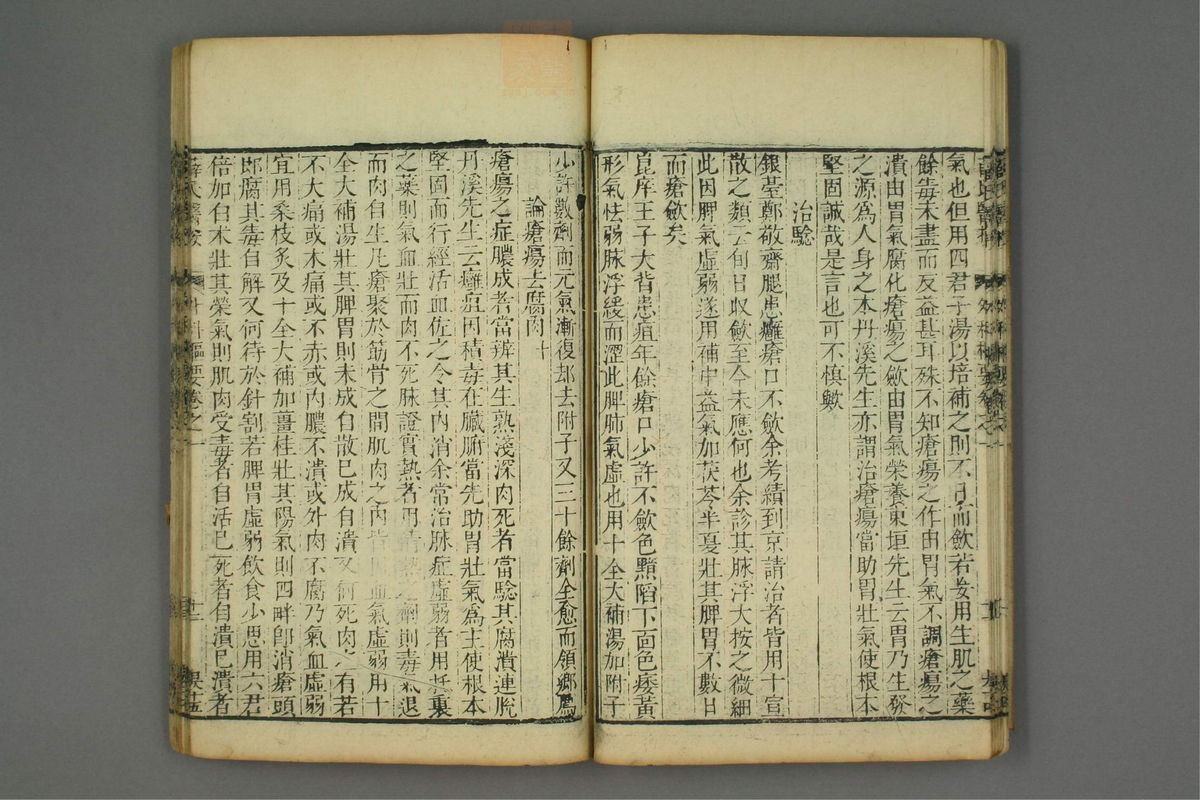 氣也但用四君子湯以培補之則不日而歛若妄用生肌之藥
餘毒未盡而反益甚耳殊不知瘡瘍之作由胃氣不調瘡瘍之
潰由胃氣腐化瘡瘍之歛由胃氣榮養東垣先生云胃乃生發
之源爲人身之本丹溪先生亦謂治瘡瘍當助胃壯氣使根本
堅固誠哉是言也可不慎歟
治驗
銀臺鄭敬齋腿患癰瘡口不歛余考績到京請治者皆用十宣
散之類云旬日收歛至今未應何也余診其脉浮大按之微細
此因脾氣虛弱遂用補中益氣加茯苓半夏壯其脾胃不數日
而瘡歛矣
崑庠王子大背患疽年餘瘡口少許不歛色黯陷下面色痿黃
形氣怯弱脉浮緩而澀此脾肺氣虛也用十全大補湯加附子
少許數劑而元氣漸復却去附子又三十餘劑全愈而領鄉薦
論瘡瘍去腐肉十
瘡瘍之症膿成者當辨其生熟淺深肉死者當驗其腐潰連脫
丹溪先生云癰疽因積毒在臟腑當先助胃壯氣爲主使根本
堅固而行經活血佐之令其內消余常治脉症虛弱者用托裏
之藥則氣血壯而肉不死脉證實熱者用清熱之劑則毒氣退
而肉自生凡瘡聚於筋骨之間肌肉之內皆因血氣虛弱用十
全大補湯壯其脾胃則未成自散已成自潰又何死肉之有若
不大痛或木痛或不赤或內膿不潰或外肉不腐乃氣血虛弱
宜用桑枝灸及十全大補加薑桂壯其陽氣則四畔卽消瘡頭
卽腐其毒自解又何待於針割若脾胃虛弱飲食少思用六君
倍加白朮壯其榮氣則肌肉受毒者自活已死者自潰已潰者
薛氏醫案
外科樞要卷之一
十二